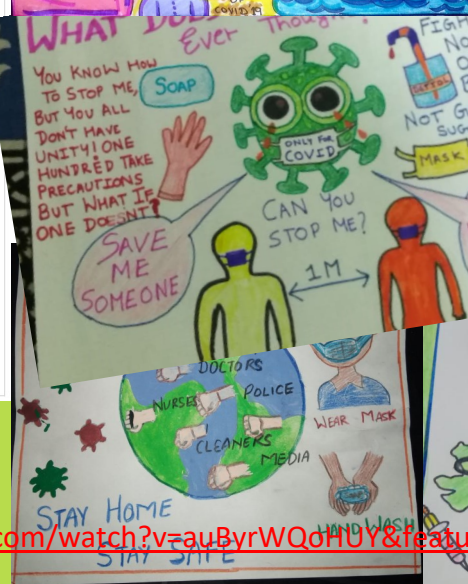 COVID 19
WHAT DOES
Ever Thought?
YOU KNOW HOW
TO STOP ME,
BUT YOU ALL
DON'T HAVE
UNITY! ONE
HUNDRED TAKE
PRECAUTIONS
BUT WHAT IF
ONE DOESN'T?
SOAP
ONLY FOR
COVID
FIGH
NO
DETTOL
NOT G
SUG
MASK
CAN YOU
STOP ME?
SAVE
ME
SOMEONE
1M
DOCTORS
NURSES
POLICE
CLEANERS
MEDIA
WEAR MASK
HAND WASH
STAY HOME
STAY SAFE
com/watch?v=auByrWQoHUY&featu